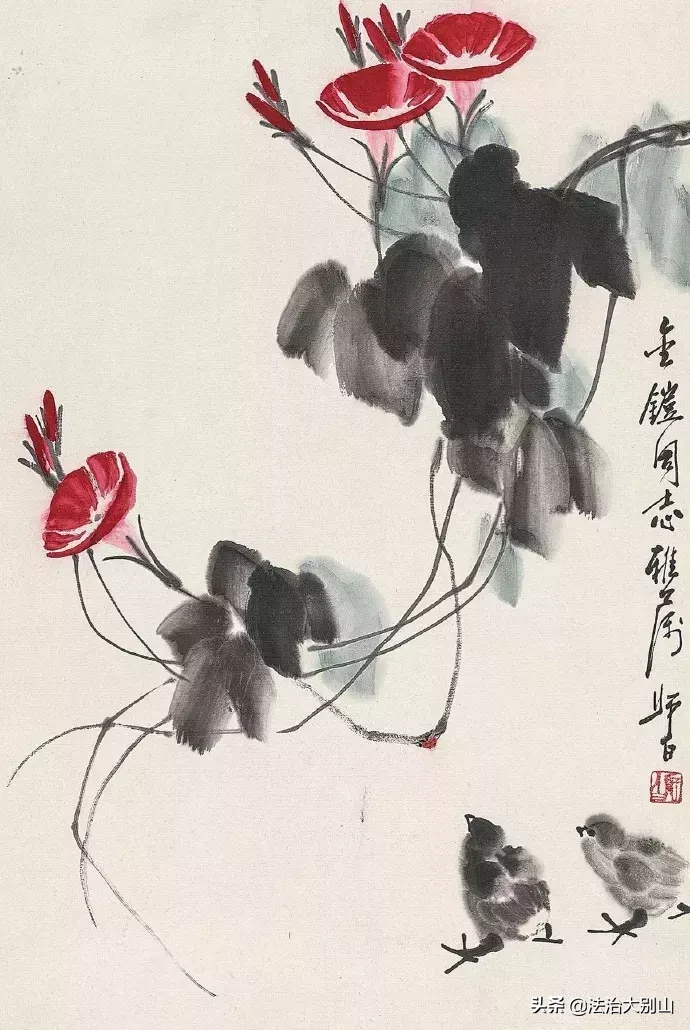 金铠同志雅属 师白
头条 @法治大别山